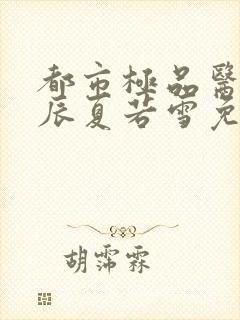 都市極品醫
辰夏若雪免
胡霈霖